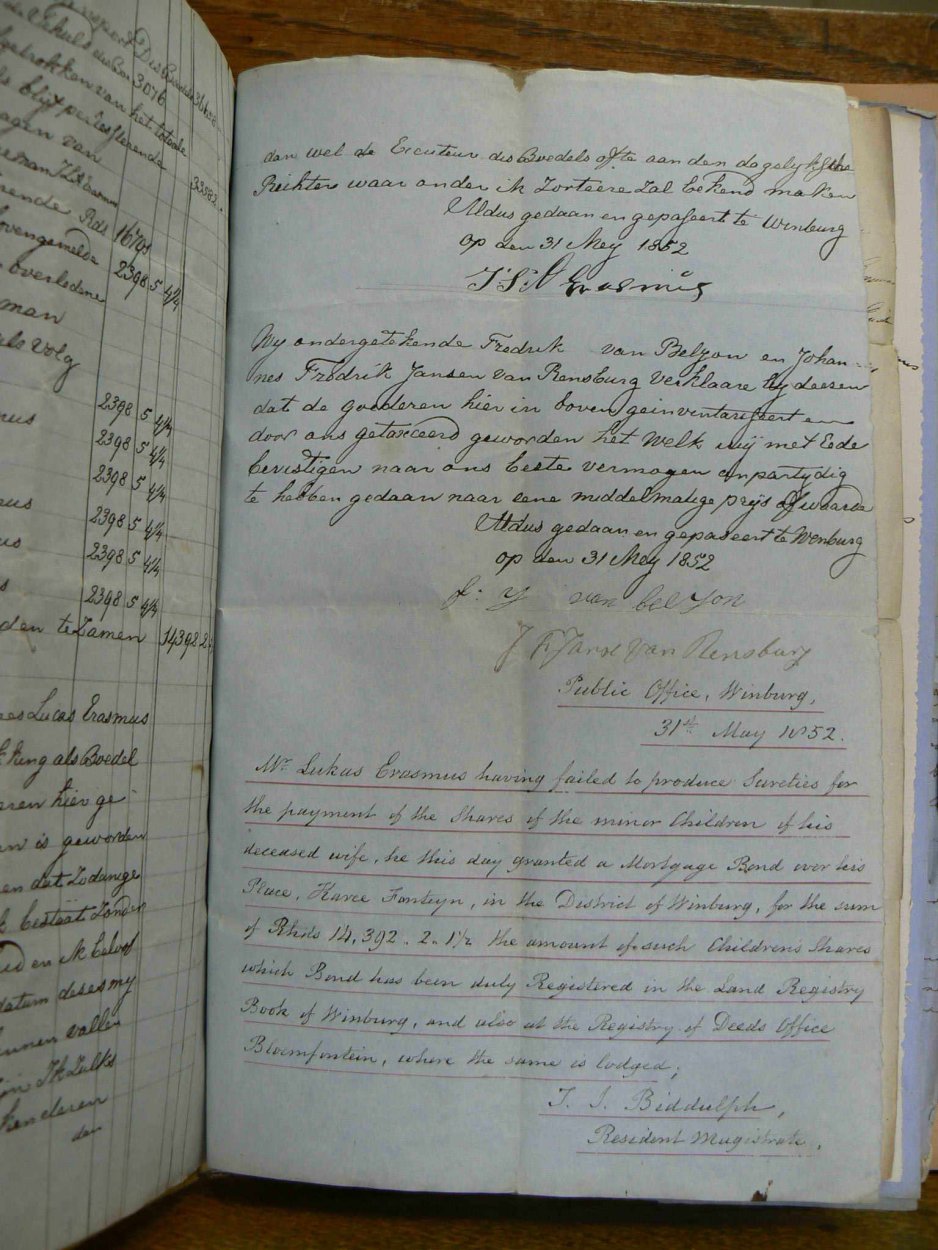 de Schuld des Boe 3076
aftrokken van het totale
blijft per resteerende 33582
agen van
eende Rds 16791
bovengemelde 2398 5 4/4
overledene
man
ale volg
2398 5 4/4
mus 2398 5 4/4
2398 5 4/4
mus 2398 5 4/4
us 2398 5 4/4
s 2398 5 4/4
den te Zamen 14392 2
es Lucas Erasmus
king als Boedel
ren hier ge
n is geworden
en dat Zodanige
k bestaat Zonder
d en ik beloof
datum deses my
unnen vallen
Zulks
kenderen
der
dan wel de Executeur des Boedels ofte aan den dagelijksche
Richter waar onder ik Zorteere Zal bekend maken
Aldus gedaan en gepaseert te Winburg
op den 31 Mey 1852
Erasmus
Wy ondergetekende Fredrik van Belzon en Johan-
nes Fredrik Jansen van Rensburg verklaare by deesen
dat de goederen hier in boven geinventariseert en
door ons getaxceerd geworden het welk wij met Eede
bevestigen naar ons beste vermogen onpartydig
te hebben gedaan naar eene middelmatige prijs of waarde
Aldus gedaan en gepaseert te Wenburg
op den 31 Mey 1852
f: y van bel yon
J F Janse Van Rensburg
Public Office, Winburg,
31st May 1852.
Mr Lukas Erasmus having failed to produce Sureties for
the payment of the Shares of the minor Children of his
deceased wife, he this day granted a Mortgage Bond over his
Place, Karee Fonteyn, in the District of Winburg, for the sum
of Rhds 14,392. 2. 1½ the amount of such Children's Shares
which Bond has been duly Registered in the Land Registry
Book of Winburg, and also at the Registry of Deeds Office
Bloemfontein, where the same is lodged;
T. J. Biddulph,
Resident Magistrate.